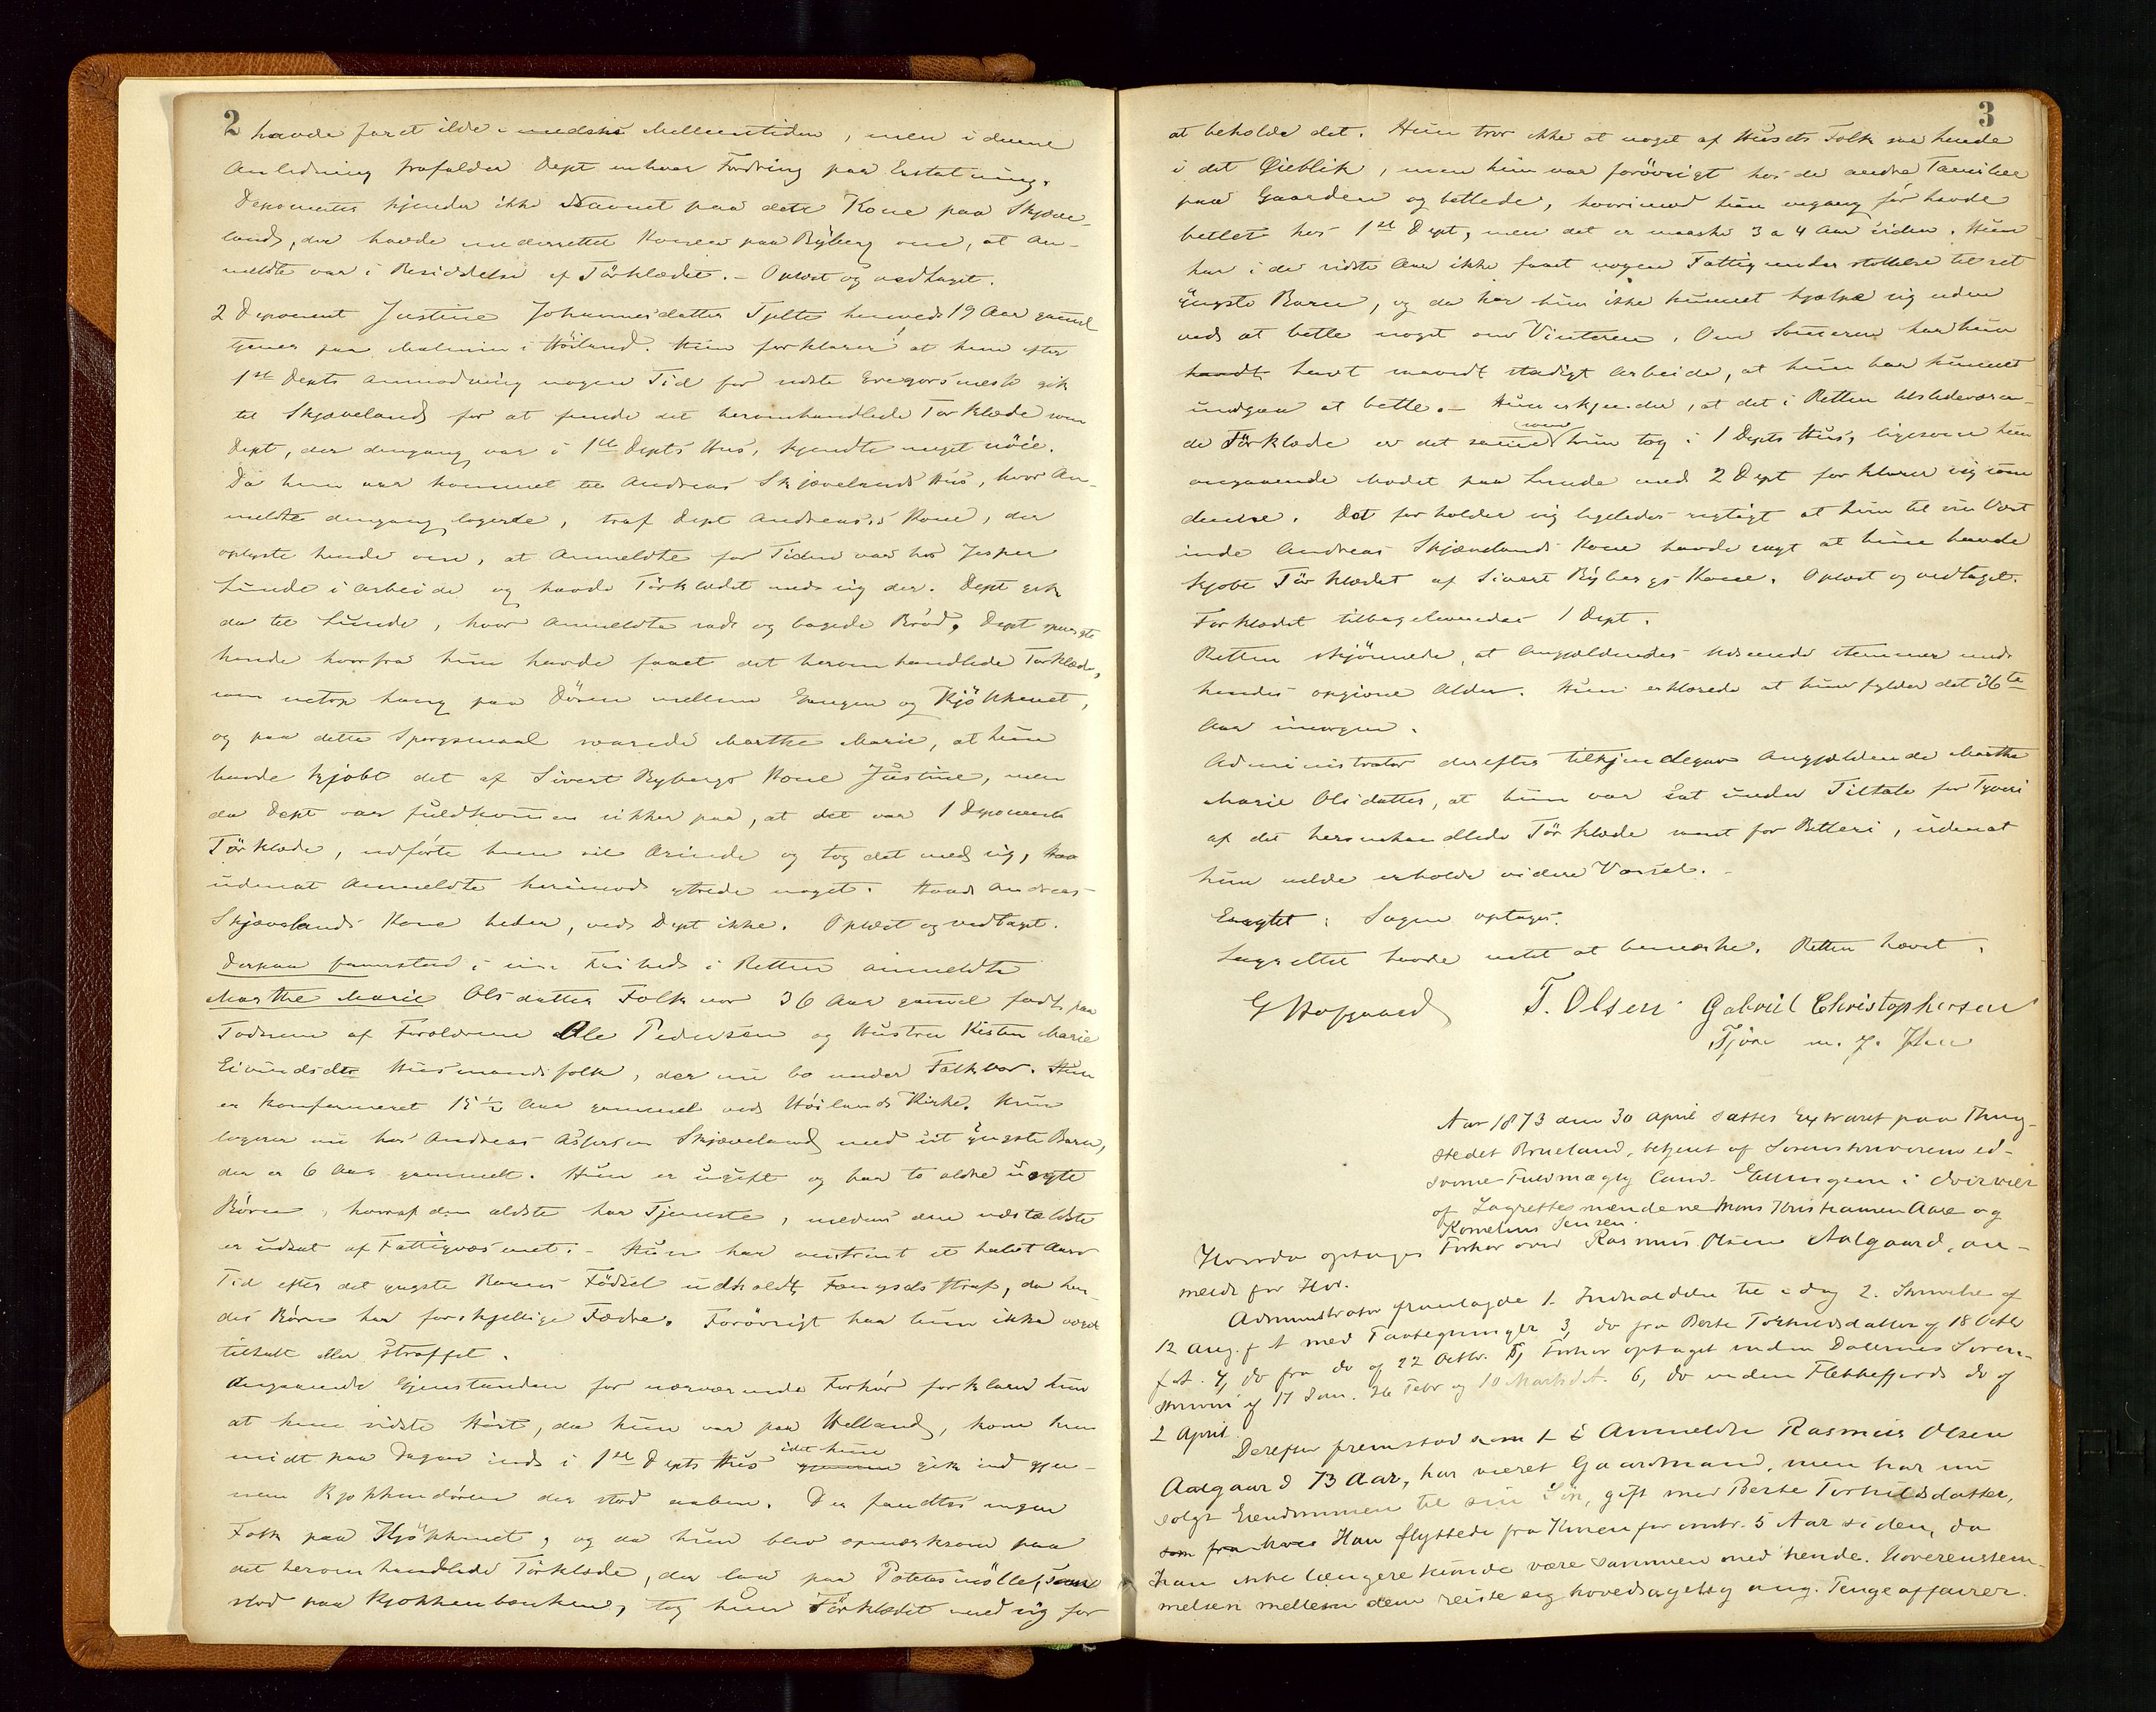 2
havde faret ilde i Mellemtiden, men i denne
Anledning frafalder Dept enhver Fordring paa Erstatning.
Deponenten kjender ikke Navnet paa dette Kone paa Skjæve-
land, der havde underrettet Konen paa Ryberg om, at An-
meldte var i Besiddelse af Törklædet. - Oplæst og vedtaget.
2 Deponent Justine Johannesdatter Tjelte henved 19 Aar gammel
tjener paa Malmin i Höiland. Hun forklarer at hun efter
1ste Depts Anmodning nogen Tid for sidste Gregorsmesse gik
til Skjæveland for at finde det heromhandlede Törklæde som
Dept, der dengang var i 1ste Depts Hus, kjendte meget nöie.
Da hun var kommet til Andreas Skjævelands Hus, hvor An-
meldte dengang logerte, traf Dept Andreas's Kone, der
oplyste hende om, at Anmeldte for Tiden var hos Jesper
Lunde i Arbeide og havde Törklædet med sig der. Dept gik
da til Lunde, hvor Anmeldte sad og bagede Bröd. Dept spurgte
hende hvorfra hun havde faaet det heromhandlede Törklæde,
som netop hang paa Dören mellem Gangen og Kjökkenet,
og paa dette Spörgsmaal svarede Marthe Marie, at hun
havde kjöbt det af Sivert Rybergs Kone Justine, men
da Dept var fuldkommen sikker paa, at det var 1 Deponents
Törklæde, udförte hun sit Ærinde og tog det med sig,
udenat Anmeldte herimod ytrede noget. Hvad Andreas
Skjævelands Kone heder, ved Dept ikke. Oplæst og vedtaget.
Derpaa fremstod i sin Frihed i Retten Anmeldte
Marthe Marie Olsdatter Folkvor 36 Aar gammel födt paa
Todnem af Forældrene Ole Pedersen og Hustru Kisten Marie
Eivindsdtr Husmandsfolk, der nu bo under Folkvor. Hun
er konfirmeret 15½ Aar gammel ved Höilands Kirke. Hun
logerer nu hos Andreas Asbjersen Skjæveland med sit yngste Barn,
der er 6 Aar gammelt. Hun er ugift og har to ældre uægte
Börn, hvoraf den ældste har Tjeneste, medens den næstældste
er udsat af Fattigvæsenet. - Hun har omtrent et halvt Aars
Tid efter det yngste Barns Födsel udholdt Fængselsstraf, da hen-
des Börn har forskjellige Fædre. Forövrigt har hun ikke været
tiltalt eller straffet.
Angaaende Gjenstanden for nærværende Forhör forklarer hun
at hun sidste Höst, da hun var paa Welland, kom hun
midt paa Dagen ind i 1ste Depts Hus idet hun gik ind gjen-
nem Kjökkendören der stod aaben. Der fandtes ingen
Folk paa Kjökkenet, og da hun blev opmærksom paa
det heromhandlede Törklæde, der laa paa Potetesmöllen, som
stod paa Kjökkenbænken, tog hun Törklædet med sig for
3
at beholde det. Hun tror ikke at noget af Husets Folk saa hende
i det Øieblik, men hun var forövrigt hos de andre Familier
paa Gaarden og betlede, hvorimod hun engang för havde
betlet hos 1ste Dept, men det er maaske 3 a 4 Aar siden. Hun
har i de sidste Aar ikke faaet nogen Fattigunderstöttelse til sit
yngste Barn, og da har hun ikke kunnet hjælpe sig uden
ved at betle noget om Vinteren. Om Sommeren har hun
havt saavidt stadigt Arbeide, at hun har kunnet
undgaa at betle. - Hun erkjender, at det i Retten tilstedeværen-
de Törklæde er det samme som hun tog i 1 Depts Hus, ligesom hun
angaaende Mödet paa Lunde med 2 Dept forklarer sig som
denne. Det forholder sig ligeledes rigtigt at hun til sin Vært
inde Andreas Skjævelands Kone havde sagt at hun havde
kjöbt Törklædet af Sivert Rybergs Kone. Oplæst og vedtaget.
Törklædet tilbageleveredes 1 Dept.
Retten skjönnede, at Angjældendes Udseende stemmer med
hendes opgivne Alder. Hun erklærede at hun fylder det 36te
Aar imorgen.
Administrator derefter tilkjendegav Angjældende Marthe
Marie Olsdatter, at hun var sat under Tiltale for Tyveri
af det heromhandlede Törklæde samt for Betleri, udenat
hun vilde erholde videre Varsel. -
Eragtet: Sagen optages.
Lagrettet havde intet at bemærke. Retten hævet.
T. Olsen Gabriel Christophersen
Tjöre m. f. Pen
Aar 1873 den 30 April sattes Extraret paa Thing-
stedet Brueland, betjent af Sorenskriverens ed-
svorne Fuldmægtig Cand. Ellingsen i Overvær
af Lagrettesmændene Mons Kristiansen Aase og
Kornelius Jensen.
Hvorda optages Forhör over Rasmus Olsen Aalgaard, an-
meldt for Hor.
Administrator fremlagde 1. Indholdden til i dag 2. Skrivelse af
12 Aug. f A med Paategninger 3, do fra Berte Torkildsdatter af 18 Octbr
f.A. 4, do fra do af 22 Octbr. 5, Forhör optaget inden Dalernes Soren-
skriveri af 17 Jan. 26 Febr og 10 Marts d.A. 6, do inden Flekkefjords do af
2 April.
Derefter fremstod som Anmeldte Rasmus Olsen
Aalgaard 73 Aar, har været Gaardmand, men har nu
solgt Eiendommen til sin Sön, gift med Berte Torkildsdatter,
Han flyttede fra Konen for omtr. 5 Aar siden, da
han ikke længere kunde være sammen med hende. Uoverensstem-
melsen mellem dem reiste sig hovedsagelig ang. Pengeaffairer.